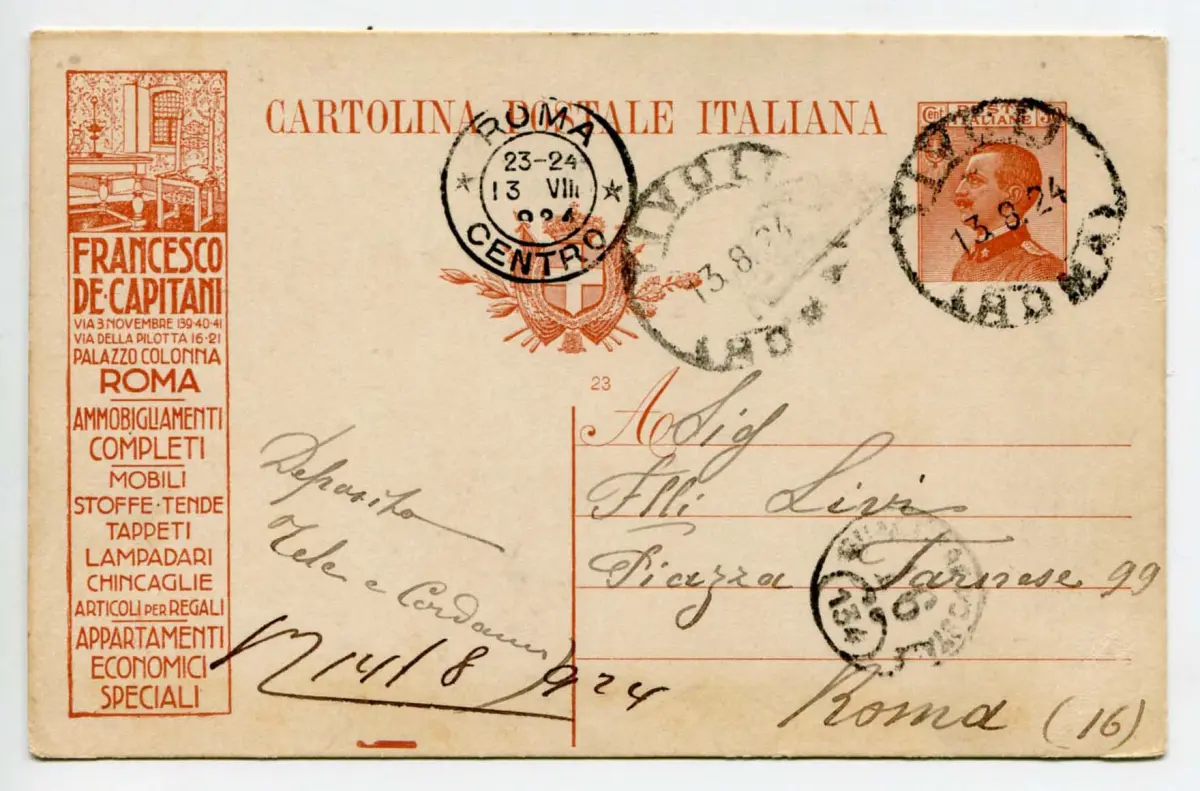 CARTOLINA POSTALE ITALIANA
Cent POSTE 30
ITALIANE
ROMA
23-24
13 VIII
924
CENTRO
TIVOLI
13.8.24
(ROMA)
TIVOLI
13.8.24
(ROMA)
FRANCESCO
DE·CAPITANI
VIA 3 NOVEMBRE 139·40·41
VIA DELLA PILOTTA 16·21
PALAZZO COLONNA
ROMA
AMMOBIGLIAMENTI
COMPLETI
MOBILI
STOFFE·TENDE
TAPPETI
LAMPADARI
CHINCAGLIE
ARTICOLI PER REGALI
APPARTAMENTI
ECONOMICI
SPECIALI
23
A Sig
Flli Livi
Piazza Farnese 99
Roma (16)
134
Deposito
Tele e
14/8/924